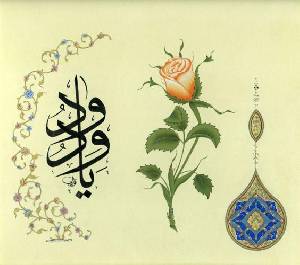 یا ودود